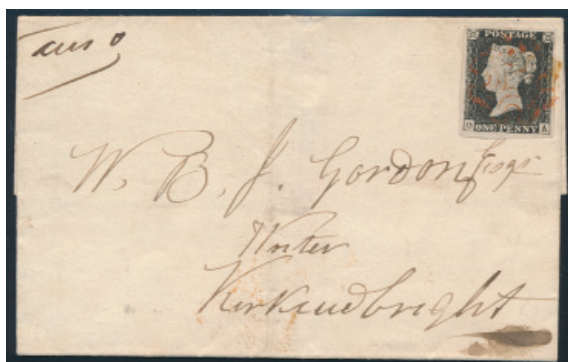 POSTAGE
O A
ONE PENNY
W. B. J. Gordon Esqr
Writer
Kirkcudbright